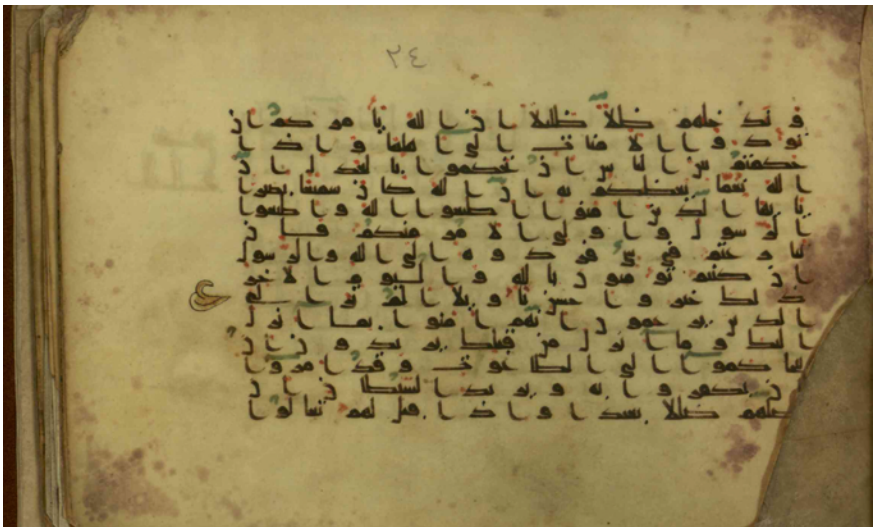 ٢٤
و ندخلهم ظلا ظليلا ان الله يا مر كم ان
تودوا الا منات الى اهلها و اذا
حكمتم بين الناس ان تحكموا بالعدل ان
الله نعما يعظكم به ان الله كان سميعا بصيرا
يايها الذين امنوا اطيعوا الله و اطيعوا
الرسول و اولى الامر منكم فان
تنازعتم في شي فردوه الى الله والرسول
ان كنتم تومنون بالله و اليوم الاخر
ذلك خير و احسن تاويلا الم تر الى
الذين يزعمون انهم امنوا بما انزل
اليك و ما انزل من قبلك يريدون ان
يتحاكموا الى الطاغوت و قد امروا
ان يكفروا به و يريد الشيطن ان
يضلهم ضللا بعيدا و اذا قيل لهم تعالوا